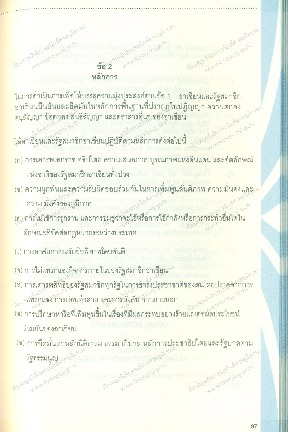 ข้อ 2
หลักการ
ในการดำเนินการเพื่อให้บรรลุความมุ่งประสงค์ตามข้อ 1 อาเซียนและรัฐสมาชิก
อาเซียนยืนยันและยึดมั่นในหลักการพื้นฐานที่ปรากฏในปฏิญญา ความตกลง
อนุสัญญา ข้อตกลง สนธิสัญญา และตราสารอื่นๆ ของอาเซียน
ให้อาเซียนและรัฐสมาชิกอาเซียนปฏิบัติตามหลักการดังต่อไปนี้
(ก) การเคารพเอกราช อธิปไตย ความเสมอภาค บูรณภาพแห่งดินแดน และอัตลักษณ์
แห่งชาติของรัฐสมาชิกอาเซียนทั้งปวง
(ข) ความผูกพันและความรับผิดชอบร่วมกันในการเพิ่มพูนสันติภาพ ความมั่นคงและ
ความมั่งคั่งของภูมิภาค
(ค) การไม่ใช้การรุกราน และการข่มขู่ว่าจะใช้หรือการใช้กำลังหรือการกระทำอื่นใดใน
ลักษณะที่ขัดต่อกฎหมายระหว่างประเทศ
(ง) การระงับข้อพิพาทโดยสันติ
(จ) การไม่แทรกแซงกิจการภายในของรัฐสมาชิกอาเซียน
(ฉ) การเคารพสิทธิของรัฐสมาชิกทุกรัฐในการธำรงประชาชาติของตนโดยปราศจากการ
แทรกแซง การบ่อนทำลาย และการบังคับ จากภายนอก
(ช) การปรึกษาหารือที่เพิ่มพูนขึ้นในเรื่องที่มีผลกระทบอย่างร้ายแรงต่อผลประโยชน์
ร่วมกันของอาเซียน
(ซ) การยึดมั่นต่อหลักนิติธรรม ธรรมาภิบาล หลักการประชาธิปไตยและรัฐบาลตาม
รัฐธรรมนูญ
97